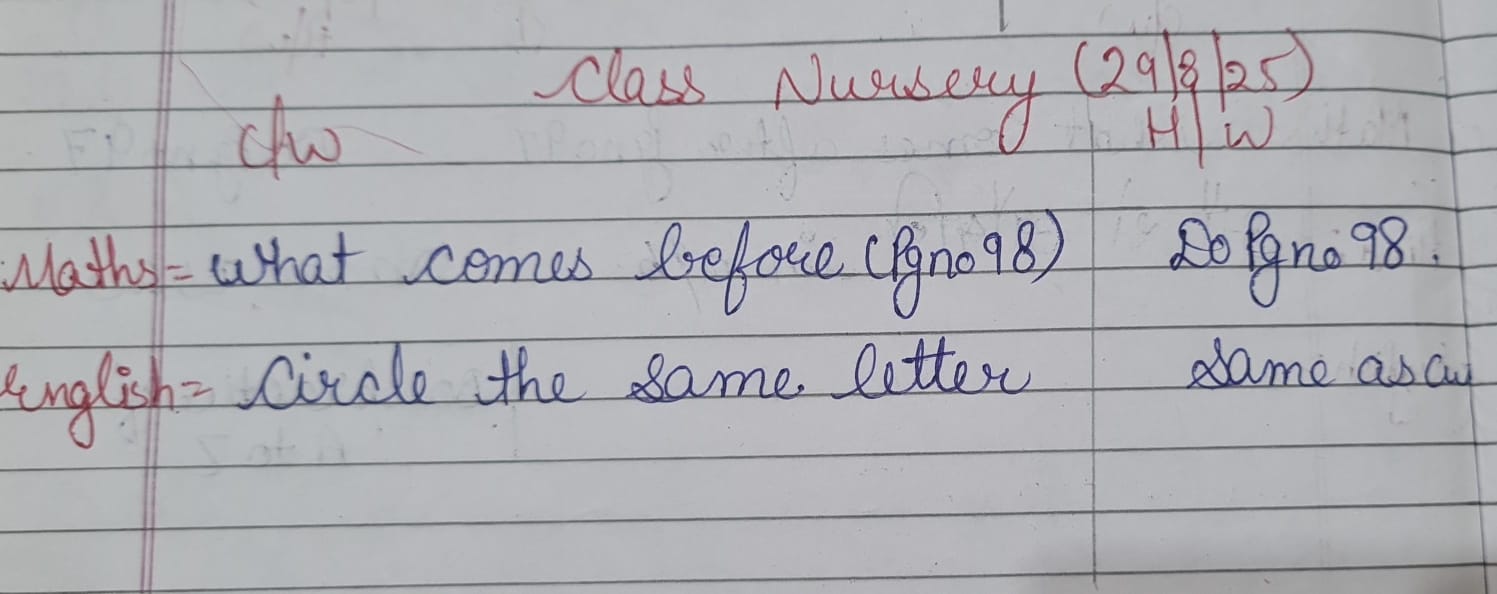 Class Nursery (29/8/25)
C/W H/W
Maths = What comes before (Pg no 98) Do Pg no 98.
English = Circle the same letter Same as